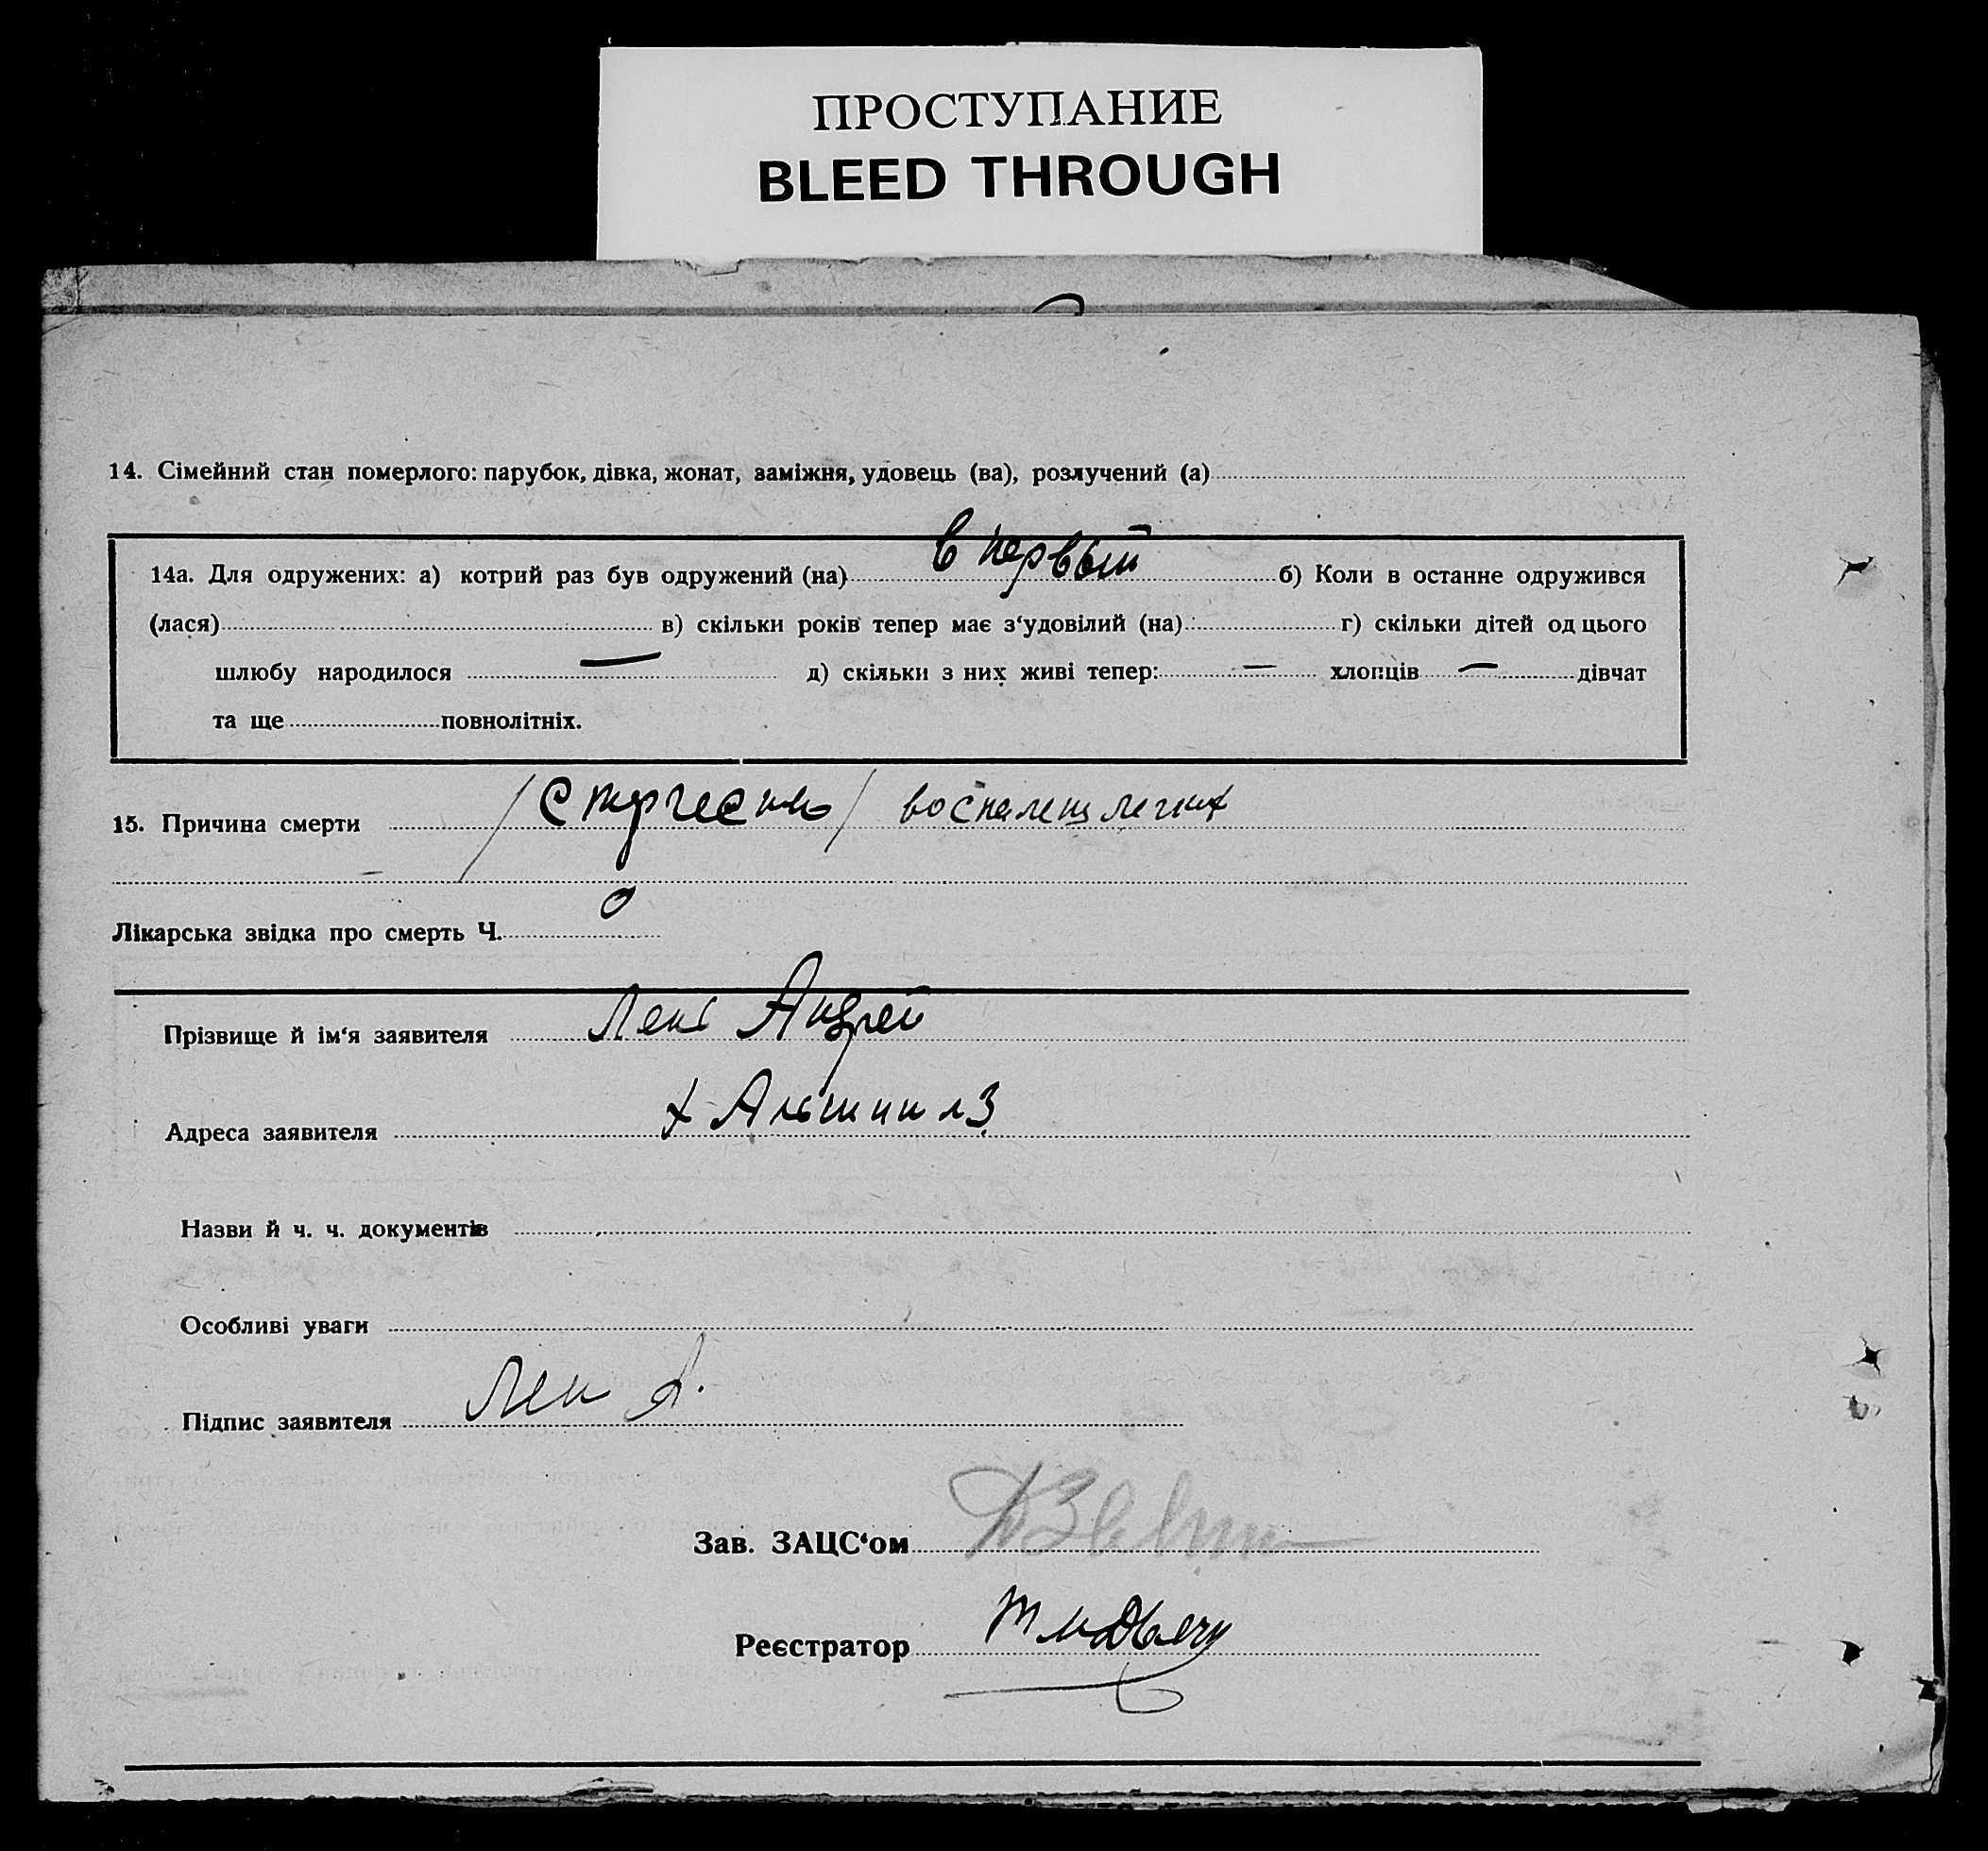 ПРОСТУПАНИЕ
BLEED THROUGH
14. Сімейний стан померлого: парубок, дівка, жонат, заміжня, удовець (ва), розлучений (а)
14а. Для одружених: а) котрий раз був одружений (на) в первый б) Коли в останне одружився
(лася) в) скільки років тепер має з‘удовілий (на) г) скільки дітей од цього
шлюбу народилося — д) скільки з них живі тепер: — хлопців — дівчат
та ще повнолітніх.
15. Причина смерти воспален легких
Лікарська звідка про смерть Ч.
Прізвище й ім‘я заявителя Андрей
Адреса заявителя
Назви й ч. ч. документів
Особливі уваги
Підпис заявителя Лен А.
Зав. ЗАЦС‘ом
Реєстратор